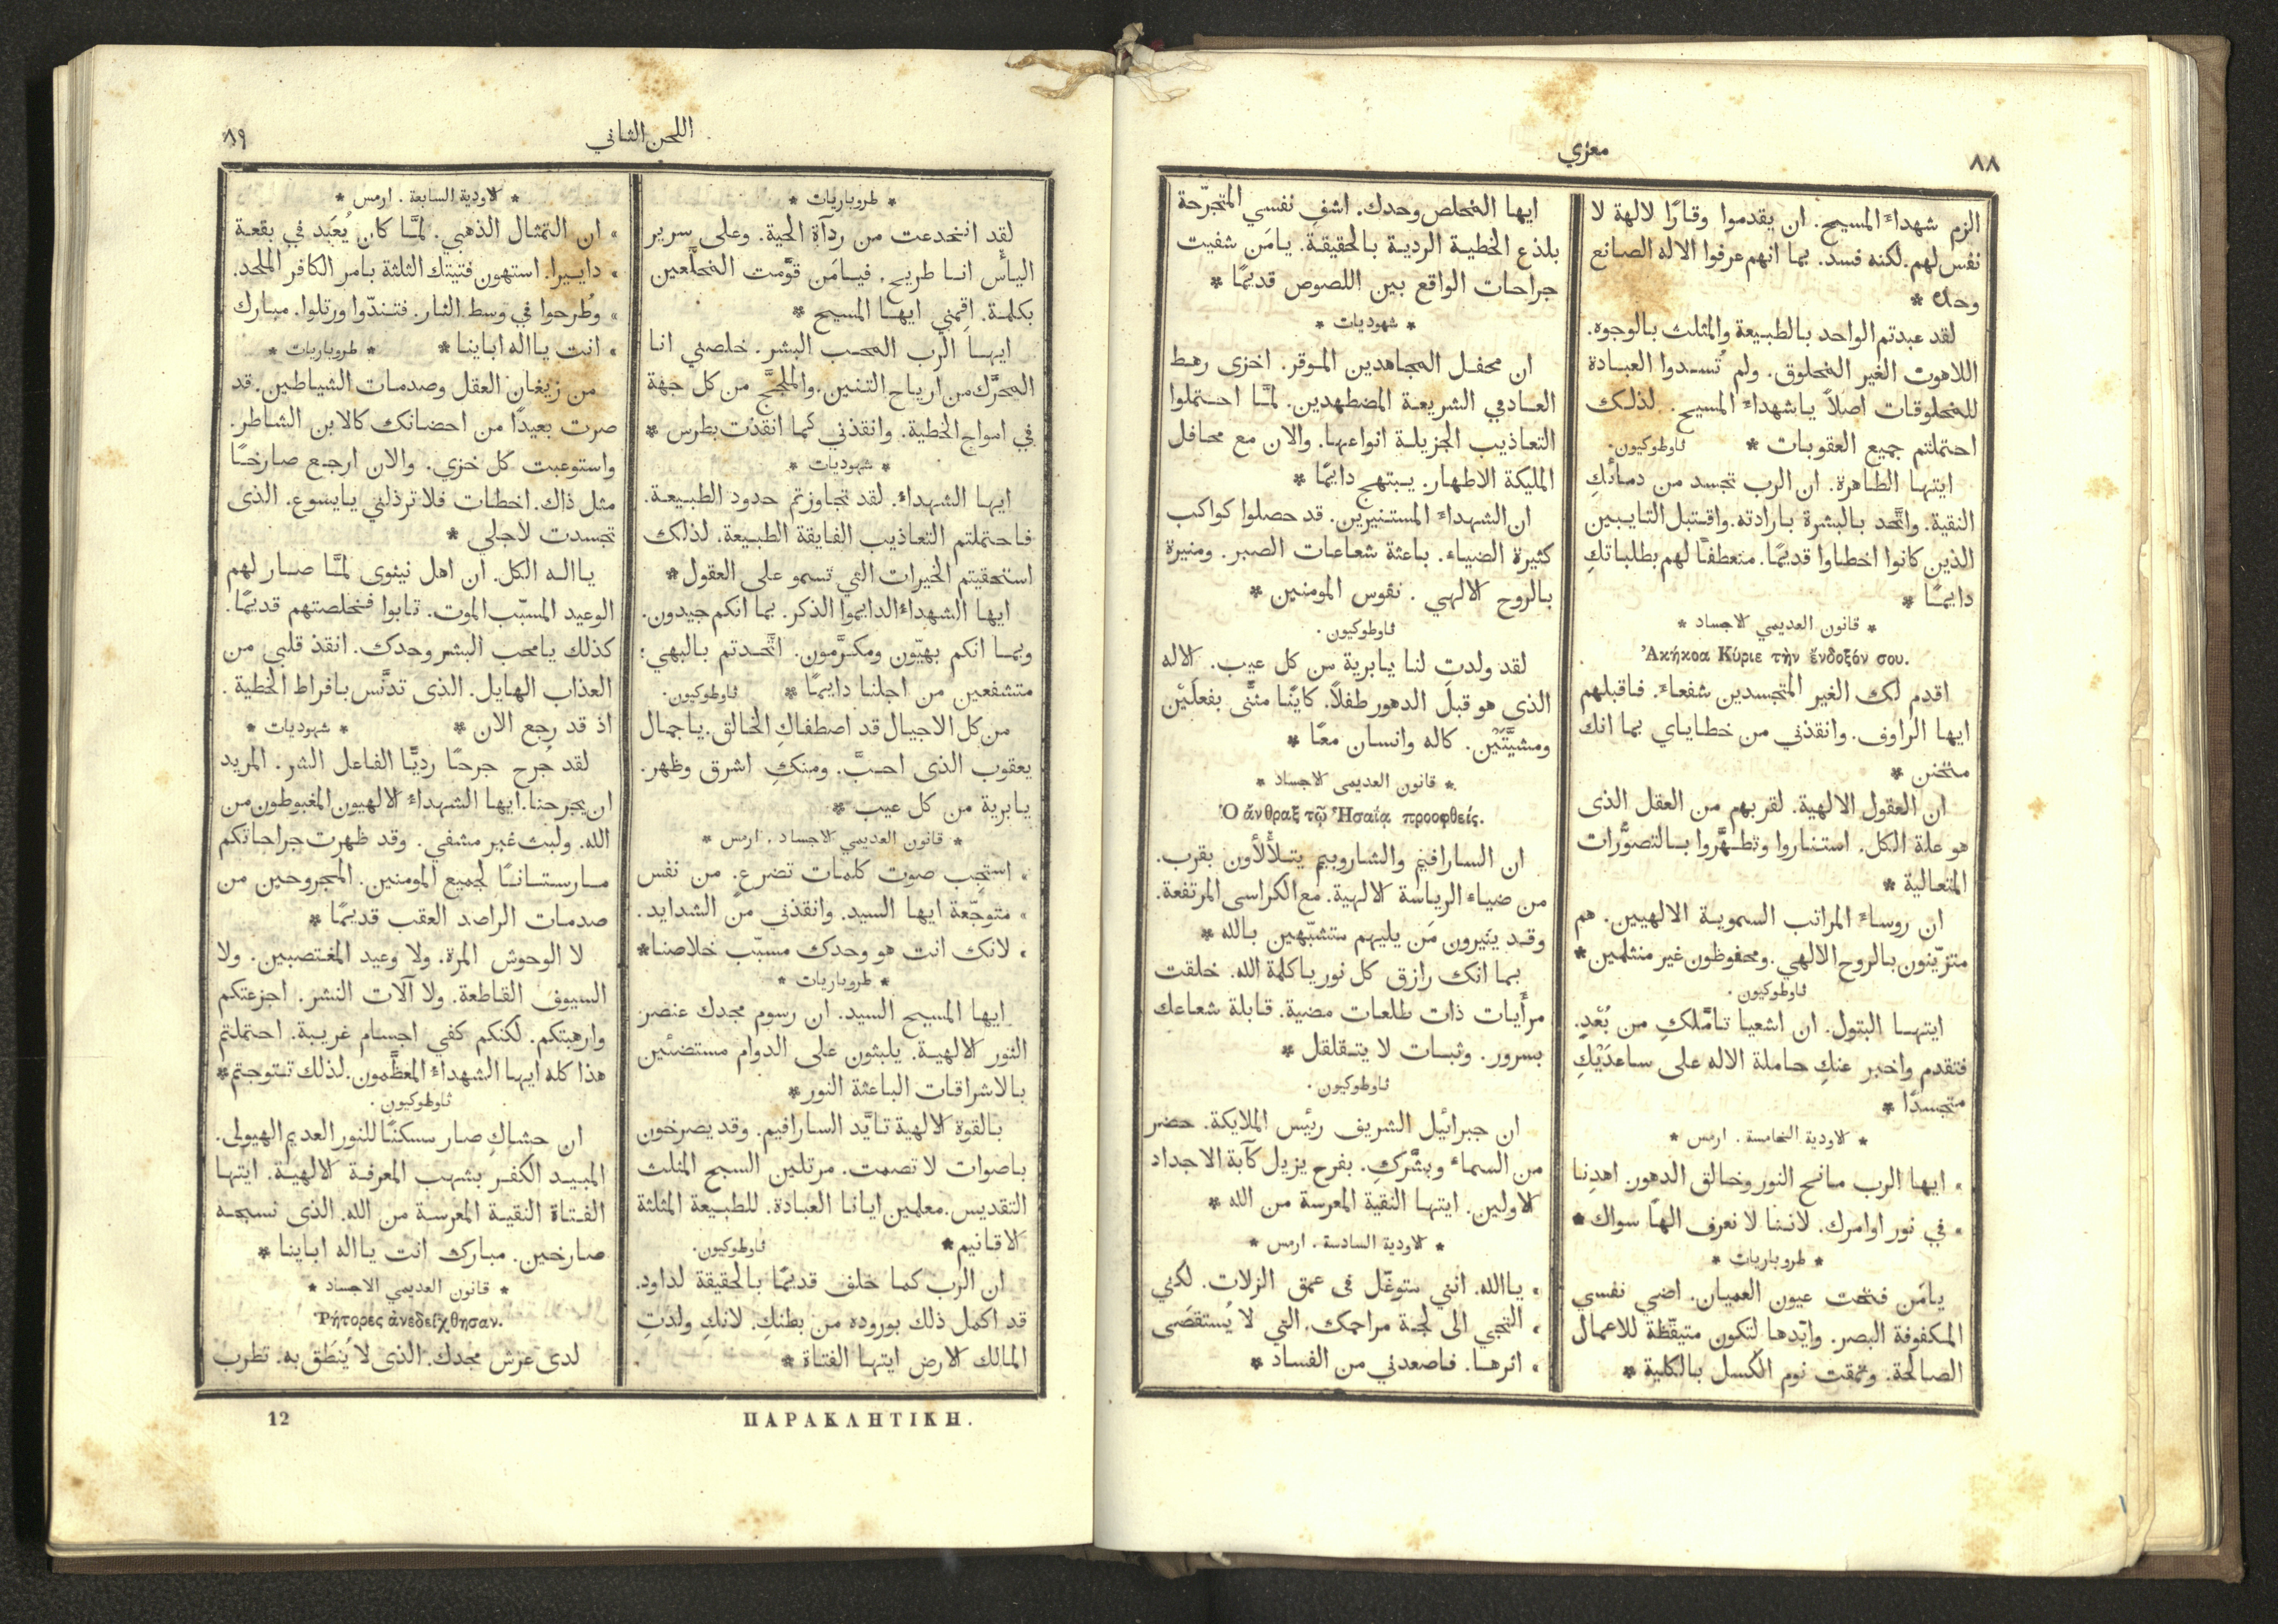 ٨٨
معزي
الزم شهداءَ المسيح. ان يقدموا وقارًا لالهة لا
نفس لهم. لكنه فسد. بما انهم عرفوا الاله الصانع
وحده *
لقد عبدتم الواحد بالطبيعة والمثلث بالوجوه.
اللاهوت الغير المخلوق. ولم تُسدوا العبادة
للمخلوقات اصلاً ياشهداءَ المسيح. لذلك
احتملتم جميع العقوبات * ثاوطوكيون.
ايتها الطاهرة. ان الرب تجسد من دمائكِ
النقية. واتَّحد بالبشرة بارادته. واقتبل التايبين
الذين كانوا اخطاوا قديمًا. منعطفًا لهم بطلباتكِ
دايمًا *
* قانون العديمي الاجساد *
Ἀκήκοα Κύριε τὴν ἔνδοξόν σου.
اقدم لك الغير المتجسدين شفعاءَ. فاقبلهم
ايها الراوف. وانقذني من خطاياي بما انك
متحنن *
ان العقول الالهية. لقربهم من العقل الذى
هو علة الكل. استناروا وتطهَّروا بالتصوُّرات
المتعالية *
ان روساءَ المراتب السموية الالهيين. هم
متزيّنون بالروح الالهي. ومحفوظون غير منثلمين *
ثاوطوكيون.
ايتها البتول. ان اشعيا تامَّلكِ من بُعْدٍ.
فتقدم واخبر عنكِ حاملة الاله على ساعدَيْكِ
متجسدًا *
* الاودية الخامسة. ارمس *
» ايها الرب مانح النور وخالق الدهور. اهدِنا
» في نور اوامرك. لاننا لا نعرف الهًا سواك *
* طروباريات *
يامَن فتحت عيون العميان. اضي نفسي
المكفوفة البصر. وايّدها لتكون متيقّظة للاعمال
الصالحة. ومقت نوم الكسل بالكلية *
ايها المخلص وحدك. اشفِ نفسي المتجرّحة
بلذع الخطية الردية بالحقيقة. يامَن شفيت
جراحات الواقع بين اللصوص قديمًا *
* شهوديات *
ان محفل المجاهدين الموقر. اخزى رهط
العادمي الشريعة المضطهدين. لمَّا احتملوا
التعاذيب الجزيلة انواعها. والان مع محافل
المليكة الاطهار. يبتهج دايمًا *
ان الشهداءَ المستنيرين. قد حصلوا كواكب
كثيرة الضياء. باعثة شعاعات الصبر. ومنيرة
بالروح الالهي. نفوس المومنين *
ثاوطوكيون.
لقد ولدتِ لنا يابرية من كل عيب. الاله
الذى هو قبل الدهور طفلاً. كاينًا مثنًّى بفعلَيْن
ومشيَّتَيْن. كاله وانسان معًا *
* قانون العديمى الاجساد *
Ὁ ἄνθραξ τῷ Ἠσαΐᾳ προοφθείς.
ان السارافيم والشاروبيم يتلألأون بقرب.
من ضياء الرياسة الالهية. مع الكراسى المرتفعة.
وقد ينيرون مَن يليهم متشبّهين بالله *
بما انك رازق كل نور ياكلمة الله. خلقت
مرآيات ذات طلعات مضية. قابلة شعاعك
بسرور. وثبات لا يتقلقل *
ثاوطوكيون.
ان جبرائيل الشريف رئيس الملايكة. حضر
من السماء وبشَّركِ. بفرح يزيل كآبة الاجداد
الاولين. ايتها النقية المعرسة من الله *
* الاودية السادسة. ارمس *
» ياالله. انني متوغّل فى عمق الزلات. لكني
» التجي الى لجة مراحمك. التي لا يُستقصَى
» اثرها. فاصعدني من الفساد *
اللحن الثاني
٨٩
* طروباريات *
لقد انخدعت من ردآة الحية. وعلى سرير
اليأس انا طريح. فيامَن قوَّمت المخلَّعين
بكلمة. اقمني ايها المسيح *
ايها الرب المحب البشر. خلصني انا
المحرَّك من ارياح التنين. والملجَّج من كل جهة
في امواج الخطية. وانقذني كما انقذت بطرس *
* شهوديات *
ايها الشهداءَ. لقد تجاوزتم حدود الطبيعة.
فاحتملتم التعاذيب الفايقة الطبيعة. لذلك
استحقيتم الخيرات التي تسمو على العقول *
ايها الشهداءَ الدايموا الذكر. بما انكم جيدون.
وبما انكم بهيّون ومكرَّمون. اتَّحدتم بالبهي:
متشفعين من اجلنا دايمًا * ثاوطوكيون.
من كل الاجيال قد اصطفاكِ الخالق. ياجمال
يعقوب الذى احبَّ. ومنكِ اشرق وظهر.
يابرية من كل عيب *
* قانون العديمي الاجساد. ارمس *
» استجِب صوت كلمات تضرع. من نفس
» متوجّعة ايها السيد. وانقذني من الشدايد.
» لانك انت هو وحدك مسبّب خلاصنا *
* طروباريات *
ايها المسيح السيد. ان رسوم مجدك عنصر
النور الالهية. يلبثون على الدوام مستضئين
بالاشراقات الباعثة النور *
بالقوة الالهية تايَّد السارافيم. وقد يصرخون
باصوات لا تصمت. مرتلين السبح المثلث
التقديس. معلمين ايانا العبادة. للطبيعة المثلثة
الاقانيم * ثاوطوكيون.
ان الرب كما حلف قديمًا بالحقيقة لداود.
قد اكمل ذلك بوروده من بطنكِ. لانكِ ولدتِ
المالك الارض ايتها الفتاة *
* الاودية السابعة. ارمس *
» ان التمثال الذهبي. لمَّا كان يُعبَد في بقعة
» دايبرا. استهون فتيتك الثلثة بامر الكافر الملحد.
» وطُرحوا في وسط النار. فتندّوا ورتلوا. مبارك
» انت يااله اباينا * * طروباريات *
من زيغان العقل وصدمات الشياطين. قد
صرت بعيدًا من احضانك كالابن الشاطر.
واستوعبت كل خزي. والان ارجع صارخًا
مثل ذاك. اخطات فلا ترذلني يايسوع. الذى
تجسدت لاجلي *
يااله الكل. ان اهل نينوى لمَّا صار لهم
الوعيد المسبّب الموت. تابوا فخلصتهم قديمًا.
كذلك يامحب البشر وحدك. انقذ قلبي من
العذاب الهايل. الذى تدنَّس بافراط الخطية.
اذ قد رجع الان * * شهوديات *
لقد جُرح جرحًا رديًّا الفاعل الشر. المريد
ان يجرحنا. ايها الشهداءَ الالهيون المغبوطون من
الله. ولبث غير مشفي. وقد ظهرت جراحاتكم
مارستانًا لجميع المومنين. المجروحين من
صدمات الراصد العقب قديمًا *
لا الوحوش المرة. ولا وعيد المغتصبين. ولا
السيوف القاطعة. ولا آلات النشر. اجزعتكم
وارهبتكم. لكنكم كفي اجسام غريبة. احتملتم
هذا كله ايها الشهداءَ المعظَّمون. لذلك تتوجتم *
ثاوطوكيون.
ان حشاكِ صار مسكنًا للنور العديم الهيولى.
المبيد الكفر بشهب المعرفة الالهية. ايتها
الفتاة النقية المعرسة من الله. الذى نسبحه
صارخين. مبارك انت يااله اباينا *
* قانون العديمي الاجساد *
Ῥήτορες ἀνεδείχθησαν.
لدى عرش مجدك. الذى لا يُنطَق به. تطرب
ΠΑΡΑΚΛΗΤΙΚΗ.
12